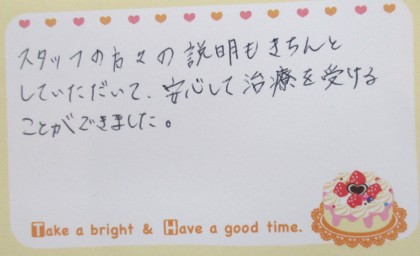 スタッフの方々の説明もきちんと
していただいて、安心して治療を受ける
ことができました。
Take a bright & Have a good time.